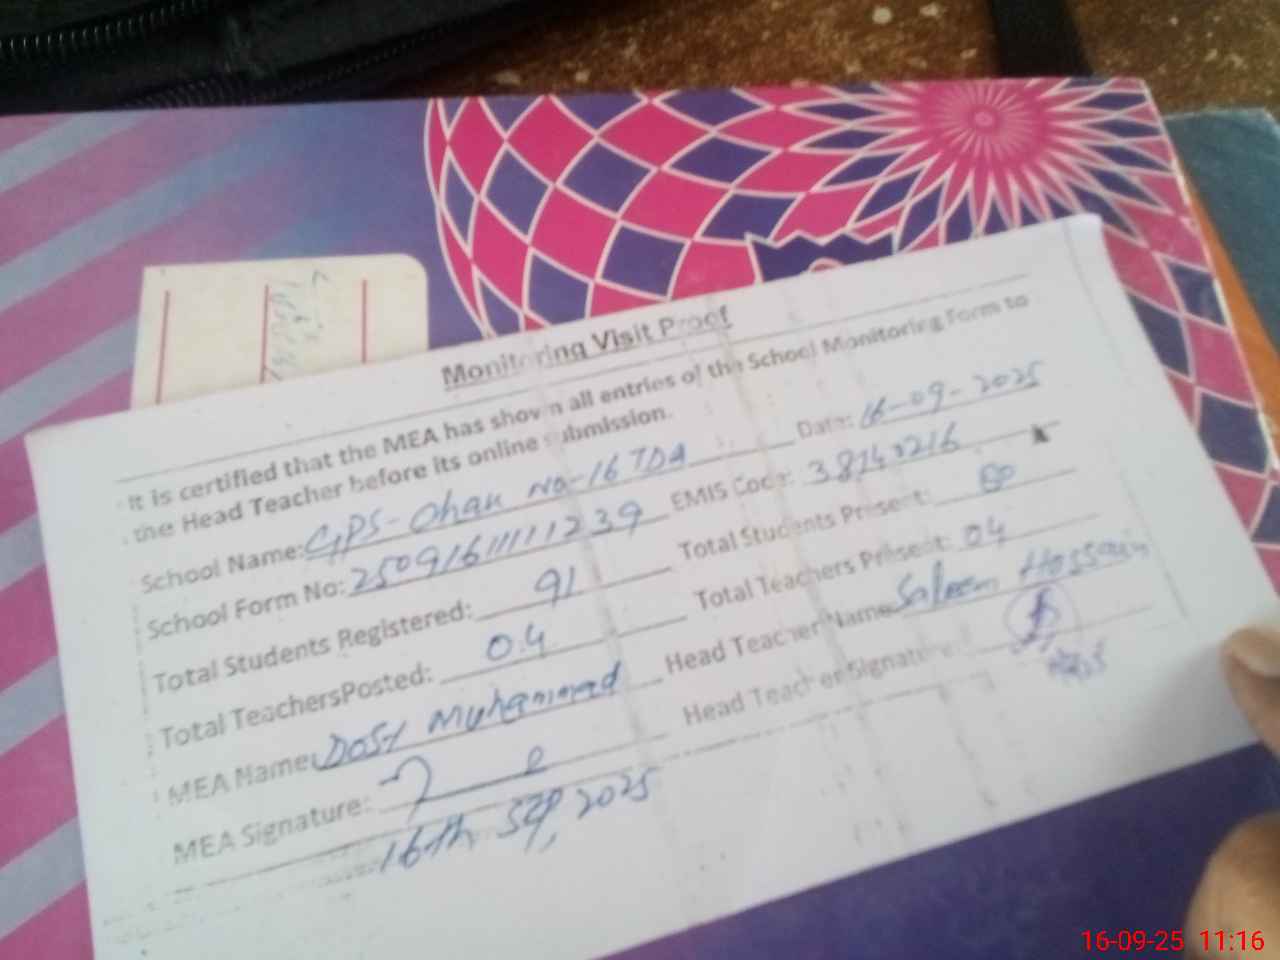 Monitoring Visit Proof
It is certified that the MEA has shown all entries of the School Monitoring Form to
the Head Teacher before its online submission.
Date: 16-09-2025
School Name: GPS- Ohan No-16 TDA
EMIS Code: 38140216
School Form No: 250916111111239
Total Students Present: 80
Total Students Registered: 91
Total Teachers Present: 04
Total TeachersPosted: 04
Head Teacher Name: Saleem Hossain
MEA Name: Dost Muhammad
Head Teacher Signature:
MEA Signature:
16th Sep, 2025
16-09-25 11:16